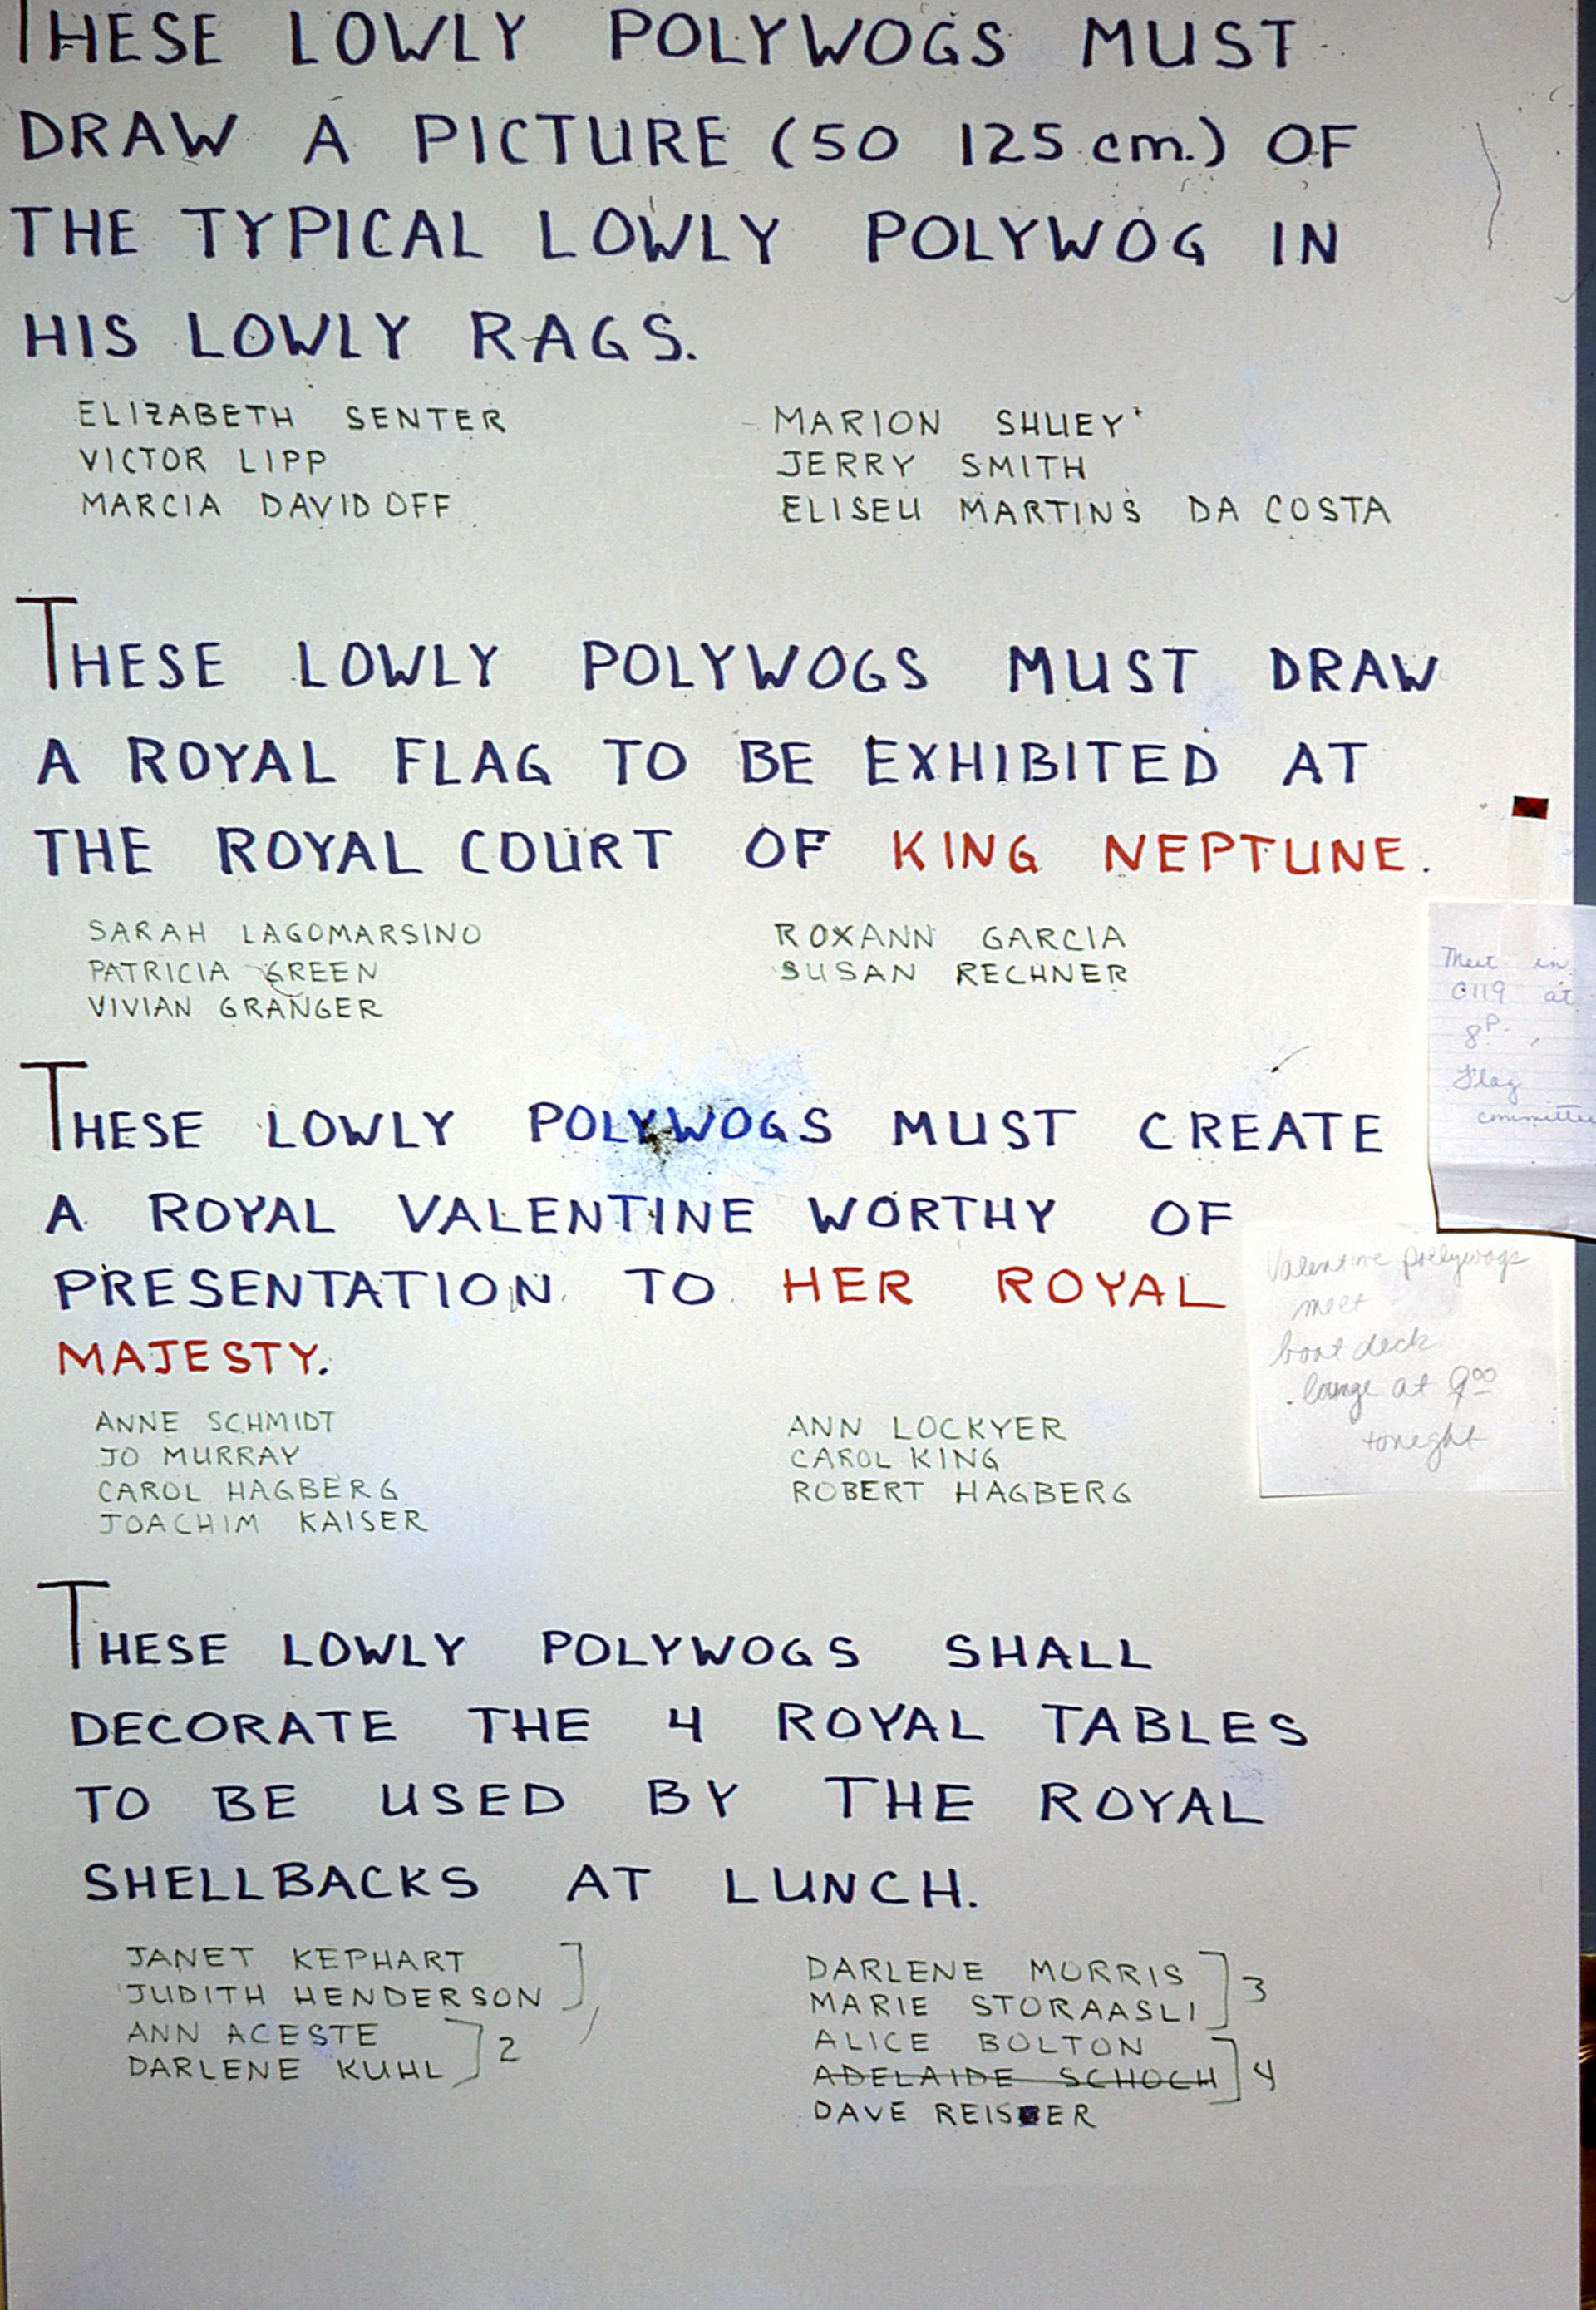 THESE LOWLY POLYWOGS MUST
DRAW A PICTURE (50 125 cm.) OF
THE TYPICAL LOWLY POLYWOG IN
HIS LOWLY RAGS.
ELIZABETH SENTER
VICTOR LIPP
MARCIA DAVIDOFF
MARION SHUEY
JERRY SMITH
ELISEU MARTINS DA COSTA
THESE LOWLY POLYWOGS MUST DRAW
A ROYAL FLAG TO BE EXHIBITED AT
THE ROYAL COURT OF KING NEPTUNE.
SARAH LAGOMARSINO
PATRICIA GREEN
VIVIAN GRANGER
ROXANN GARCIA
SUSAN RECHNER
Meet in
C119 at
8P.
Flag
committee
THESE LOWLY POLYWOGS MUST CREATE
A ROYAL VALENTINE WORTHY OF
PRESENTATION TO HER ROYAL
MAJESTY.
ANNE SCHMIDT
JO MURRAY
CAROL HAGBERG
JOACHIM KAISER
ANN LOCKYER
CAROL KING
ROBERT HAGBERG
Valentine pollywogs
meet
boat deck
lounge at 900
tonight
THESE LOWLY POLYWOGS SHALL
DECORATE THE 4 ROYAL TABLES
TO BE USED BY THE ROYAL
SHELLBACKS AT LUNCH.
JANET KEPHART
JUDITH HENDERSON ] 1
ANN ACESTE
DARLENE KUHL ] 2
DARLENE MORRIS
MARIE STORAASLI ] 3
ALICE BOLTON
ADELAIDE SCHOCH ] 4
DAVE REISER